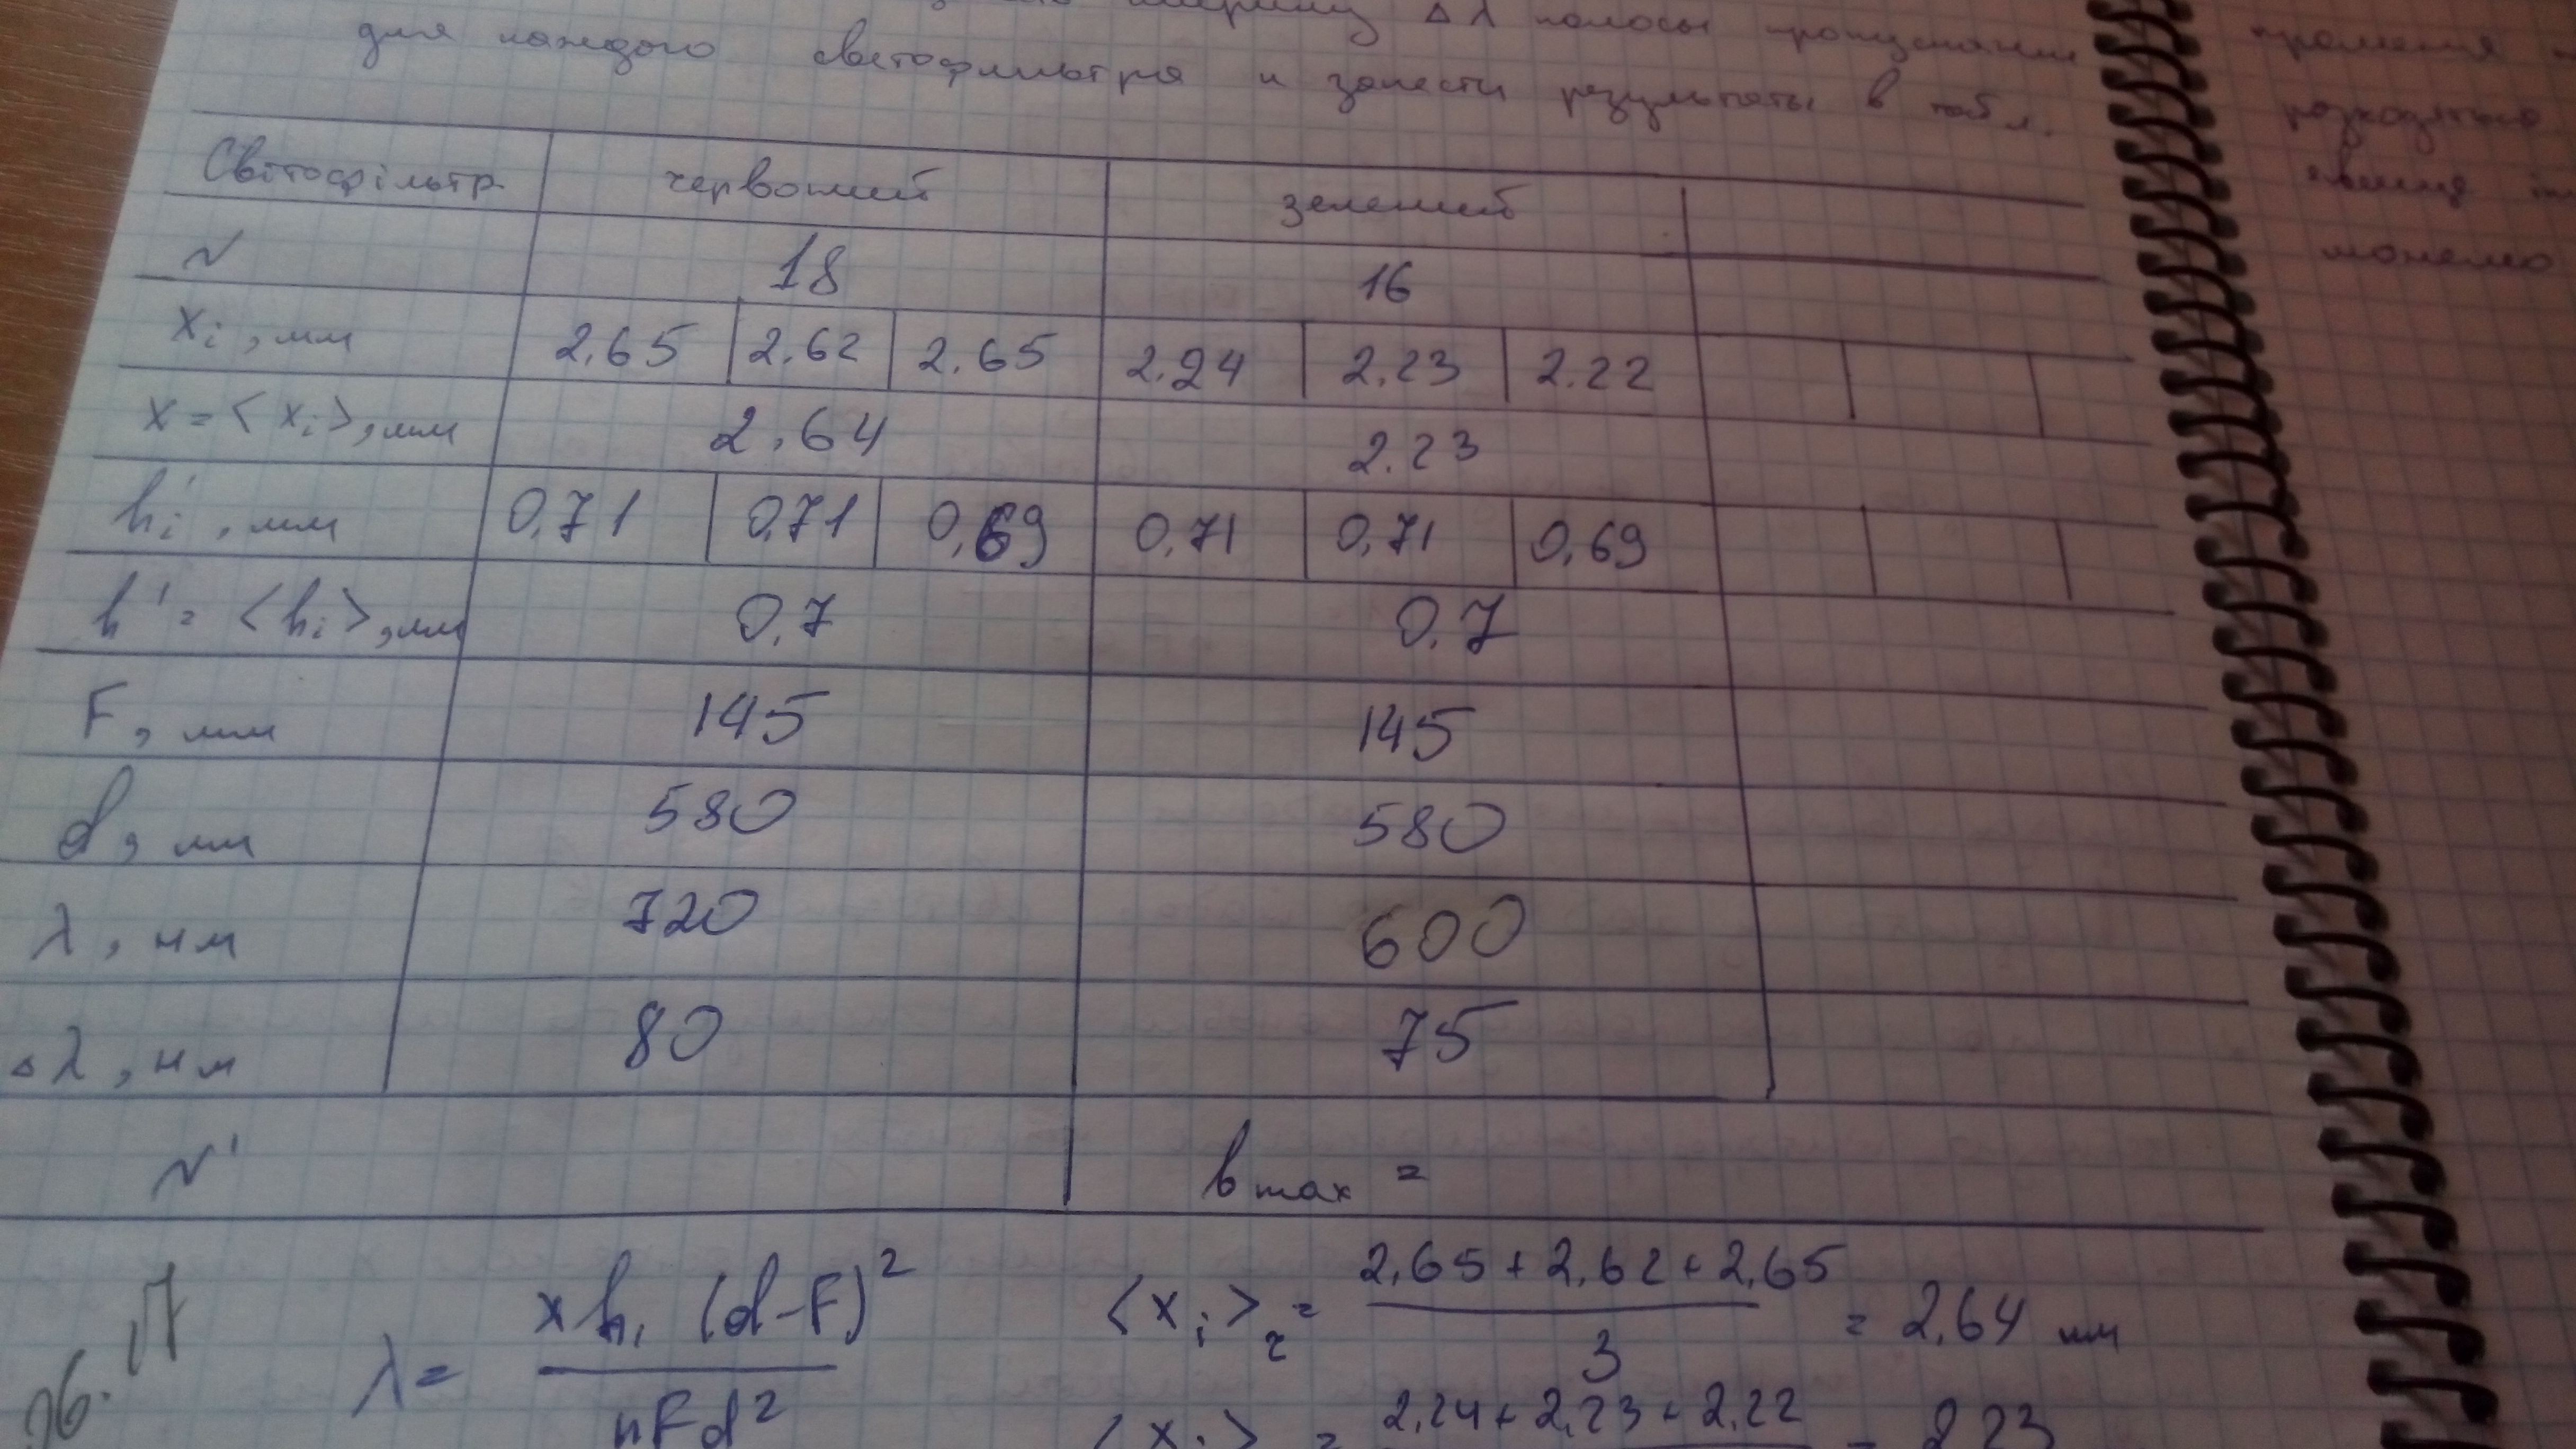 ширину Δλ полосы пропускания
для каждого светофильтра и занести результаты в табл.
Світофільтр червоний зелений
N 18 16
xi, мм 2,65 2,62 2,65 2,24 2,23 2,22
x = <xi>, мм 2,64 2,23
h'i, мм 0,71 0,71 0,69 0,71 0,71 0,69
h' = <hi>, мм 0,7 0,7
F, мм 145 145
d, мм 580 580
λ, нм 720 600
Δλ, нм 80 75
N' bmax =
λ = xh, (d-F)² / nFd²
<xi>r = 2,65 + 2,62 + 2,65 / 3 = 2,64 мм
<xi> = 2,24 + 2,23 + 2,22 = 2,23
06.17